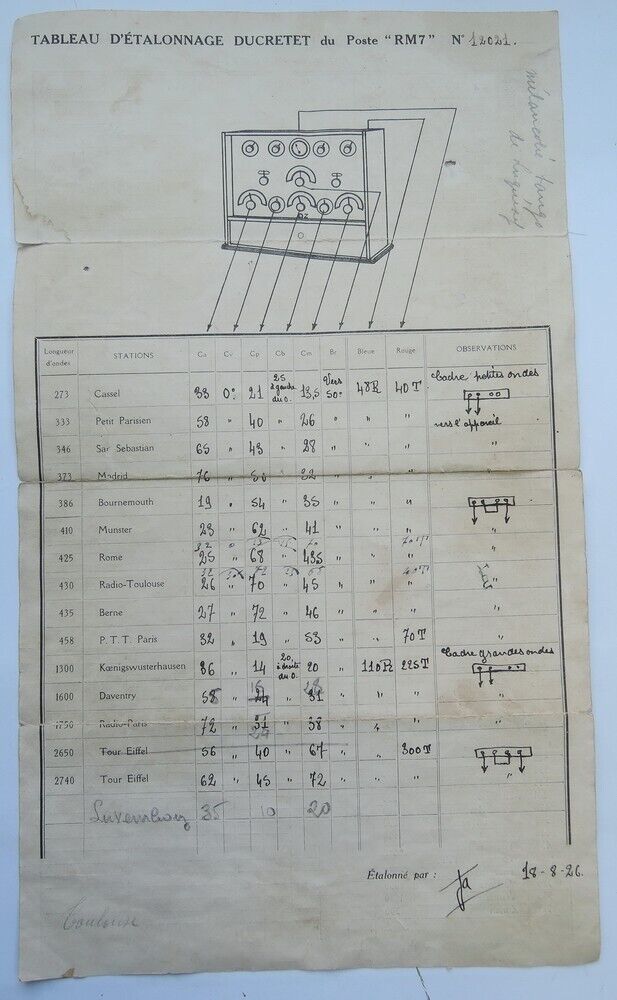 TABLEAU D'ÉTALONNAGE DUCRETET du Poste "RM7" N° 12021.
mélancolie tango
de
Longueur d'ondes STATIONS Ca Cv Cp Cb Cm Br Bleue Rouge OBSERVATIONS
273 Cassel 33 0° 21 25 à gauche du 0. 13,5 Vers 50° 48R 40T Cadre petites ondes
333 Petit Parisien 58 " 40 " 26 " " " vers l'appareil
346 San Sebastian 65 " 43 " 28 " " " "
373 Madrid 76 " 50 " 32 " " "
386 Bournemouth 19 " 54 " 35 " " "
410 Munster 23 " 62 " 41 " " " "
425 Rome 25 " 68 " 43,5 " " " "
430 Radio-Toulouse 26 " 70 " 45 " " " "
435 Berne 27 " 72 " 46 " " " "
458 P. T. T. Paris 32 " 19 " 53 " " 70T "
1300 Kœnigswusterhausen 36 " 14 20, à droite du 0. 20 " 110R 225T Cadre grandes ondes
1600 Daventry 58 " 24 " 31 " " "
1750 Radio-Paris 72 " 31 " 38 " " "
2650 Tour Eiffel 56 " 40 " 67 " " 300T
2740 Tour Eiffel 62 " 45 " 72 " " " "
Luxembourg 35 10 20
Étalonné par : 18-8-26.
Toulouse